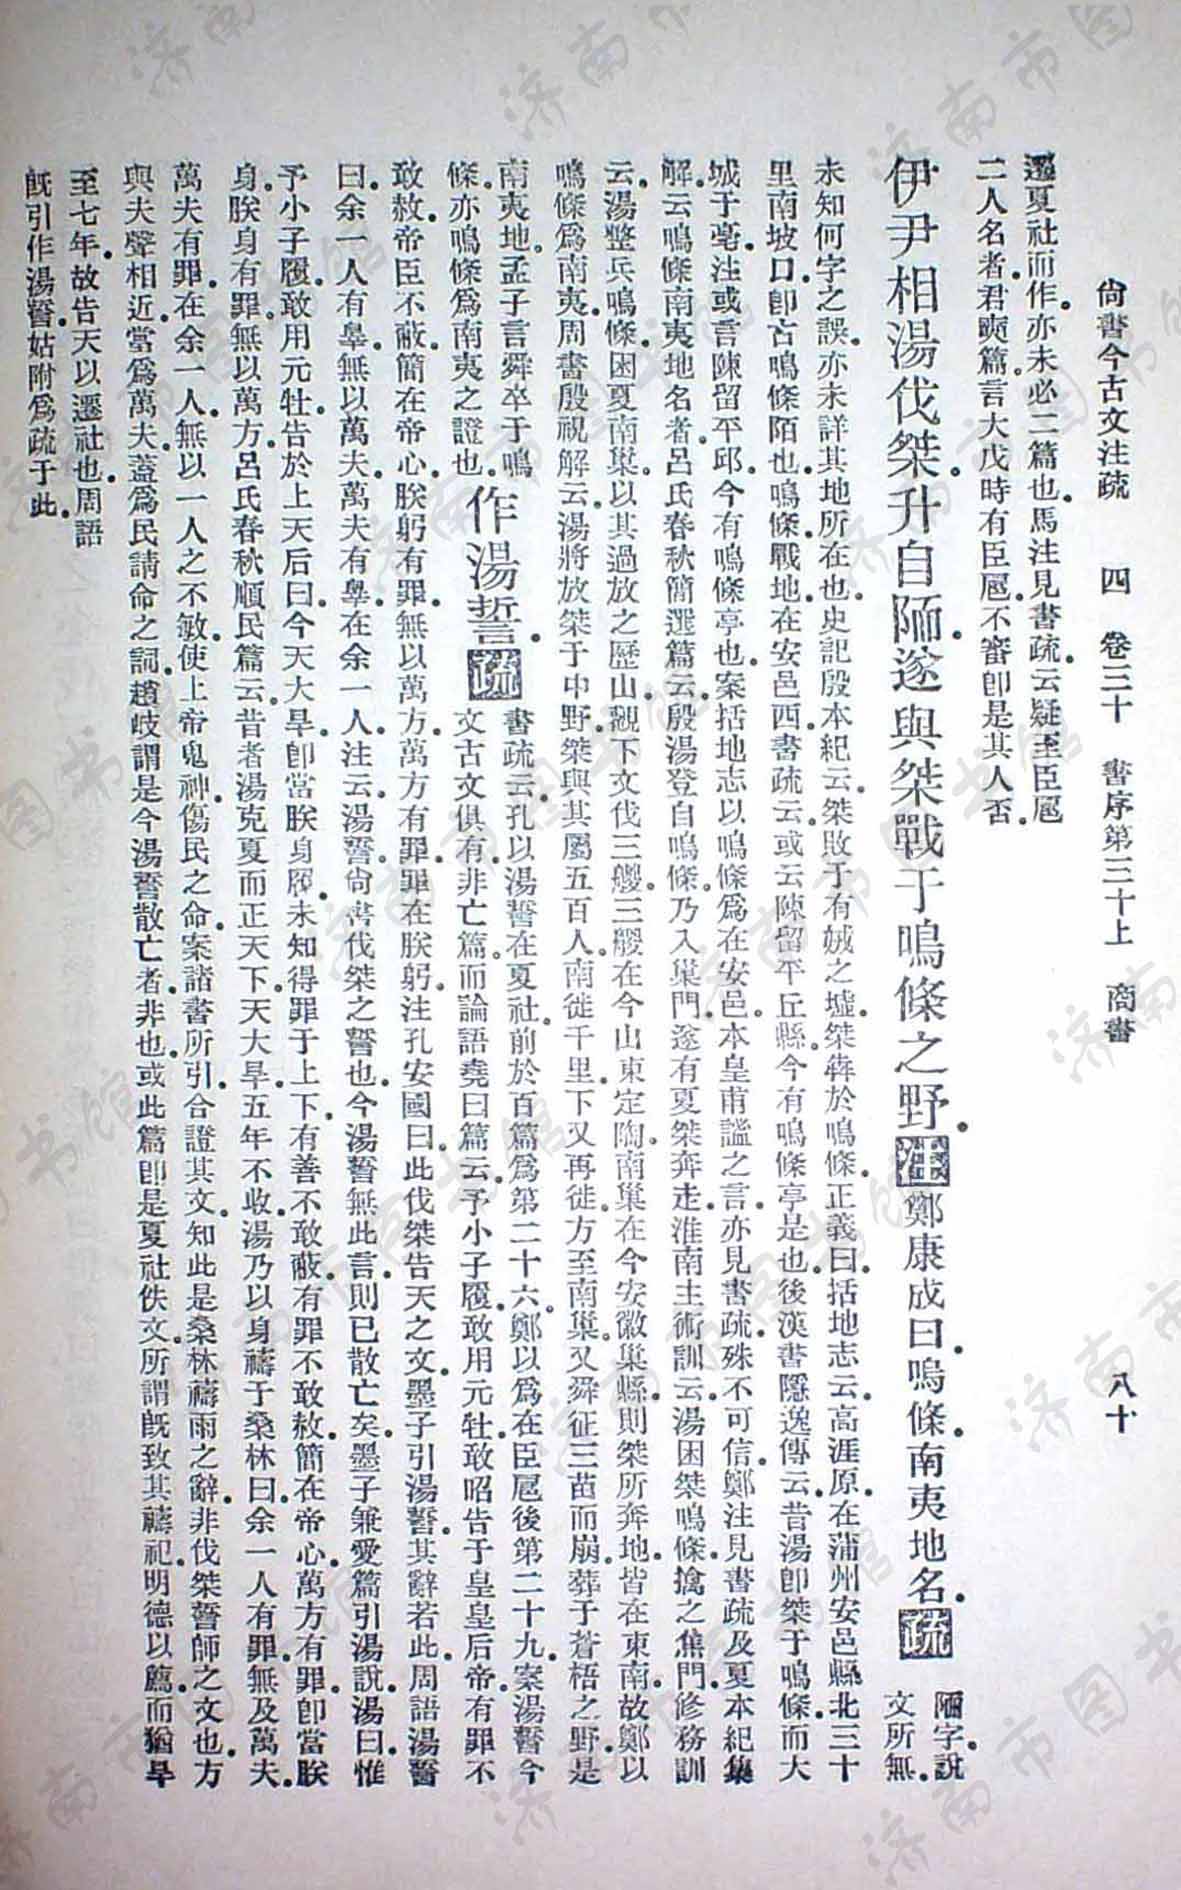 尙書今古文注疏　四　卷三十　書序第三十上　商書　八十
遷夏社而作。亦未必二篇也。馬注見書疏。云疑至臣扈
二人名者。君奭篇。言大戊時有臣扈。不審卽是其人否。
伊尹相湯伐桀。升自陑。遂與桀戰于鳴條之野。注鄭康成曰。鳴條。南夷地名。疏陑字。說
文所無。
未知何字之誤。亦未詳其地所在也。史記殷本紀云。桀敗于有娀之墟。桀犇於鳴條。正義曰。括地志云。高涯原。在蒲州安邑縣北三十
里南坡口。卽古鳴條陌也。鳴條。戰地。在安邑西。書疏云。或云陳留平丘縣。今有鳴條亭是也。後漢書隱逸傳云。昔湯卽桀于鳴條。而大
城于亳。注或言陳留平邱。今有鳴條亭也。案括地志以鳴條爲在安邑。本皇甫謐之言。亦見書疏。殊不可信。鄭注見書疏及夏本紀集
解。云鳴條。南夷地名者。呂氏春秋簡選篇云。殷湯登自鳴條。乃入巢門。遂有夏。桀奔走。淮南主術訓云。湯困桀鳴條。擒之焦門。修務訓
云。湯整兵鳴條。困夏南巢。以其過放之歷山。觀下文伐三朡。三朡在今山東定陶。南巢在今安徽巢縣。則桀所奔地。皆在東南。故鄭以
鳴條爲南夷。周書殷祝解云。湯將放桀于中野。桀與其屬五百人。南徙千里。下又再徙。方至南巢。又舜征三苗而崩。葬于蒼梧之野。是
南夷地。孟子言舜卒于鳴
條。亦鳴條爲南夷之證也。作湯誓。疏書疏云。孔以湯誓在夏社。前於百篇爲第二十六。鄭以爲在臣扈後第二十九。案湯誓今
文古文俱有。非亡篇。而論語堯曰篇云。予小子履。敢用元牡。敢昭告于皇皇后帝。有罪不
敢赦。帝臣不蔽。簡在帝心。朕躬有罪。無以萬方。萬方有罪。罪在朕躬。注孔安國曰。此伐桀告天之文。墨子引湯誓。其辭若此。周語湯誓
曰。余一人有辠。無以萬夫。萬夫有辠。在余一人。注云。湯誓。尙書伐桀之誓也。今湯誓無此言。則已散亡矣。墨子兼愛篇引湯說。湯曰。惟
予小子履。敢用元牡。告於上天后曰。今天大旱。卽當朕身履。未知得罪于上下。有善不敢蔽。有罪不敢赦。簡在帝心。萬方有罪。卽當朕
身。朕身有罪。無以萬方。呂氏春秋順民篇云。昔者湯克夏而正天下。天大旱。五年不收。湯乃以身禱于桑林曰。余一人有罪。無及萬夫。
萬夫有罪。在余一人。無以一人之不敏。使上帝鬼神。傷民之命。案諸書所引。合證其文。知此是桑林禱雨之辭。非伐桀誓師之文也。方
與夫聲相近。當爲萬夫。蓋爲民請命之詞。趙岐謂是今湯誓散亡者。非也。或此篇卽是夏社佚文。所謂旣致其禱祀。明德以薦。而猶旱
至七年。故告天以遷社也。周語
旣引作湯誓。姑附爲疏于此。